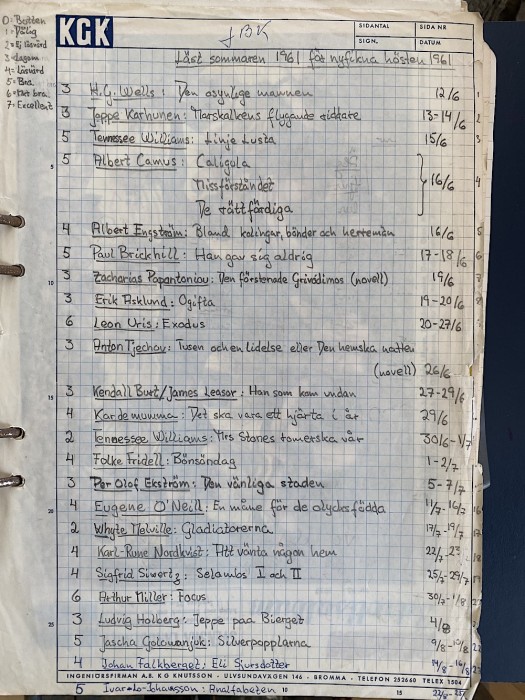 0: Botten
1 = Dålig
2 = Ej läsvärd
3 = Lagom
4 = Läsvärd
5 = Bra
6 = Mkt bra
7 = Excellent
KGK
JBK
SIDANTAL
SIDA NR
SIGN.
DATUM
Läst sommaren 1961 för nyfikna hösten 1961
3 H.G. Wells: Den osynlige mannen 12/6 1
3 Jeppe Karhunen: Marskalkens flygande riddare 13-14/6 2
5 Tennessee Williams: Linje Lusta 15/6 3
5 5 Albert Camus: Caligula
Missförståndet 16/6 4
De rättfärdiga
4 Albert Engström: Bland kolingar, bönder och herremän 16/6 5
5 Paul Brickhill: Han gav sig aldrig 17-18/6 6
10 3 Zacharias Papantoniou: Den förstenade Grivodimos (novell) 19/6 7
3 Erik Asklund: Ogifta 19-20/6 8
6 Leon Uris: Exodus 20-27/6
3 Anton Tjechov: Tusen och en lidelse eller Den hemska natten
(novell) 26/6
15 3 Kendall Burt/James Leasor: Han som kom undan 27-29/6
4 Kar de mumma: Det ska vara ett hjärta i år 29/6
2 Tennessee Williams: Mrs Stones romerska vår 30/6-1/7
4 Folke Fridell: Bönsöndag 1-2/7
3 Per Olof Ekström: Den vänliga staden 5-7/7
20 4 Eugene O'Neill: En måne för de olycksfödda 11/7-16/7 16
2 Whyte Melville: Gladiatorerna 17/7-19/7 17
4 Karl-Rune Nordkvist: Att vänta någon hem 22/7-23 18
4 Sigfrid Siwertz: Selambs I och II 25/7-29/7 19
6 Arthur Miller: Focus 30/7-1/8
25 3 Ludvig Holberg: Jeppe paa Bierget 4/8
5 Jascha Golowanjuk: Silverpopplarna 9/8-10/8 22
4 Johan Falkberget: Eli Sjursdotter 14/8-16/8
INGENIÖRSFIRMAN A.B. KG KNUTSSON - ULVSUNDAVÄGEN 146 - BROMMA - TELEFON 252660 TELEX 1504
5 Ivar Lo-Johansson: Analfabeten 10 15